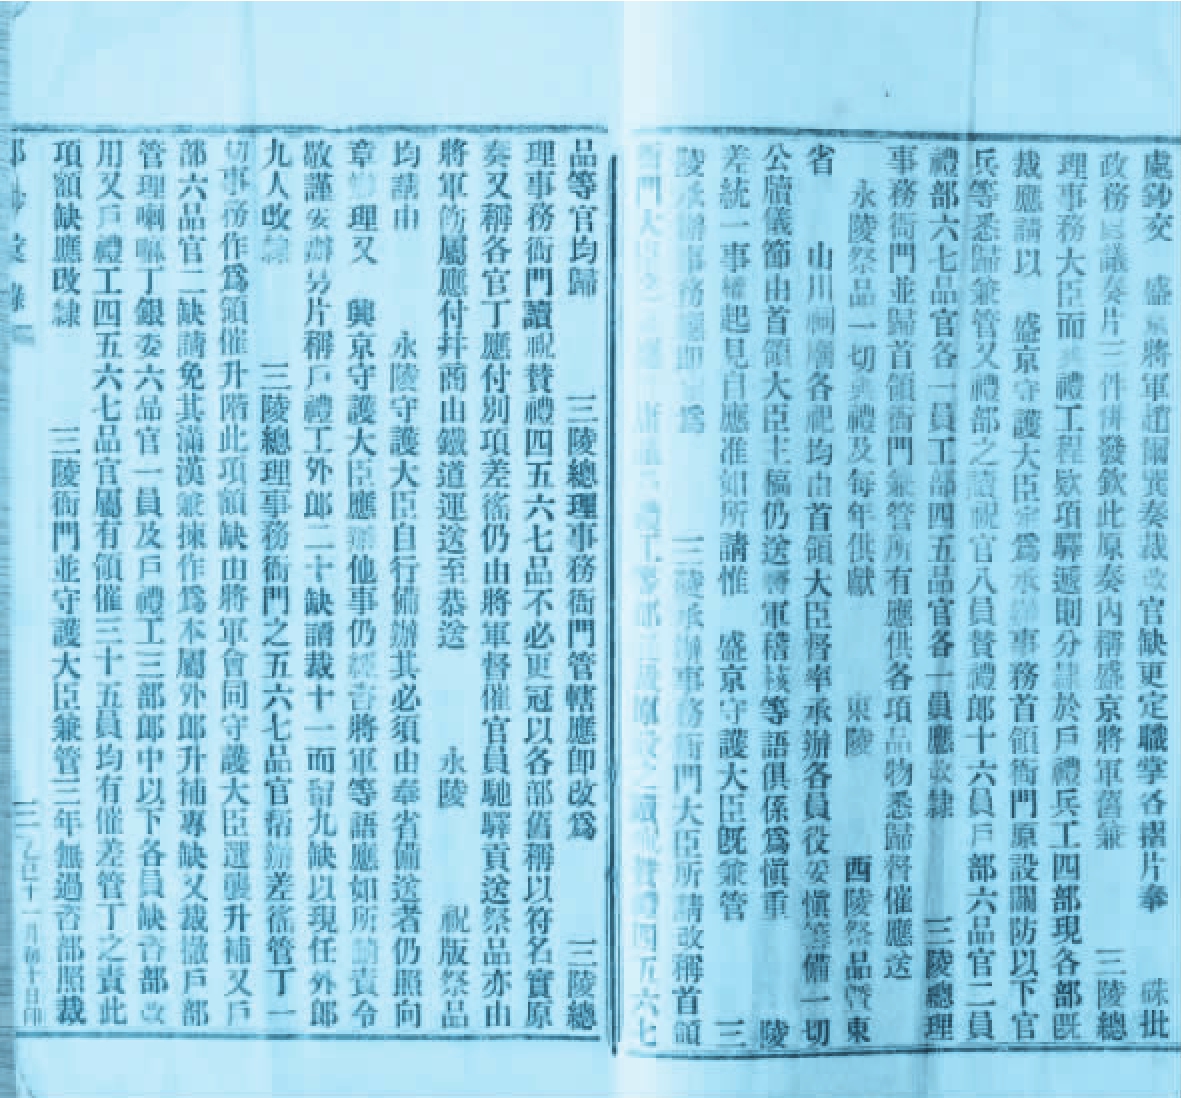 處鈔交　盛京將軍趙爾巽奏裁改官缺更定職掌各摺片奉　硃批
政務處議奏片三件併發欽此原奏內稱盛京將軍舊兼　三陵總
理事務大臣而　禮工程欵項驛遞則分隸於戶禮兵工四部現各部既
裁應請以　盛京守護大臣定爲承辦事務首領衙門原設關防以下官
兵等悉歸兼管又禮部之讀祝官八員贊禮郎十六員戶部六品官二員
禮部六七品官各一員工部四五品官各一員應改隸　三陵總理
事務衙門並歸首領衙門兼管所有應供各項品物悉歸督催應送
永陵祭品一切典禮及每年供獻　東陵　西陵祭品暨東
省　山川祠廟各祀均由首領大臣督率承辦各員役妥愼籌備一切
公牘儀節由首領大臣主稿仍送將軍稽核等語俱係爲愼重　陵
差統一事權起見自應准如所請惟　盛京守護大臣既兼管　三
陵承辦事務應即　爲　三陵承辦事務衙門大臣所請改稱首領
衙門大　禮工　部　原設之讀祝贊禮四五六七
品等官均歸　三陵總理事務衙門管轄應即改爲　三陵總
理事務衙門讀祝贊禮四五六七品不必更冠以各部舊稱以符名實原
奏又稱各官丁應付別項差徭仍由將軍督催官員馳驛貢送祭品亦由
將軍飭屬應付幷商由鐵道運送至恭送　永陵　祝版祭品
均請由　永陵守護大臣自行備辦其必須由奉省備送者仍照向
章辦理又　興京守護大臣應辦他事仍經咨將軍等語應如所請責令
敬謹妥辦另片稱戶禮工外郎二十缺請裁十一而留九缺以現任外郎
九人改隸　三陵總理事務衙門之五六七品官幇辦差徭管丁一
切事務作爲領催升階此項額缺由將軍會同守護大臣選襲升補又戶
部六品官二缺請免其滿漢兼揀作爲本屬外郎升補專缺又裁撤戶部
管理喇嘛丁銀委六品官一員及戶禮工三部郎中以下各員缺咨部改
用又戶禮工四五六七品官屬有領催三十五員均有催差管丁之責此
項額缺應改隸　三陵衙門並守護大臣兼管三年無過咨部照裁
邸鈔彙錄　三　乙巳十一月初十日印